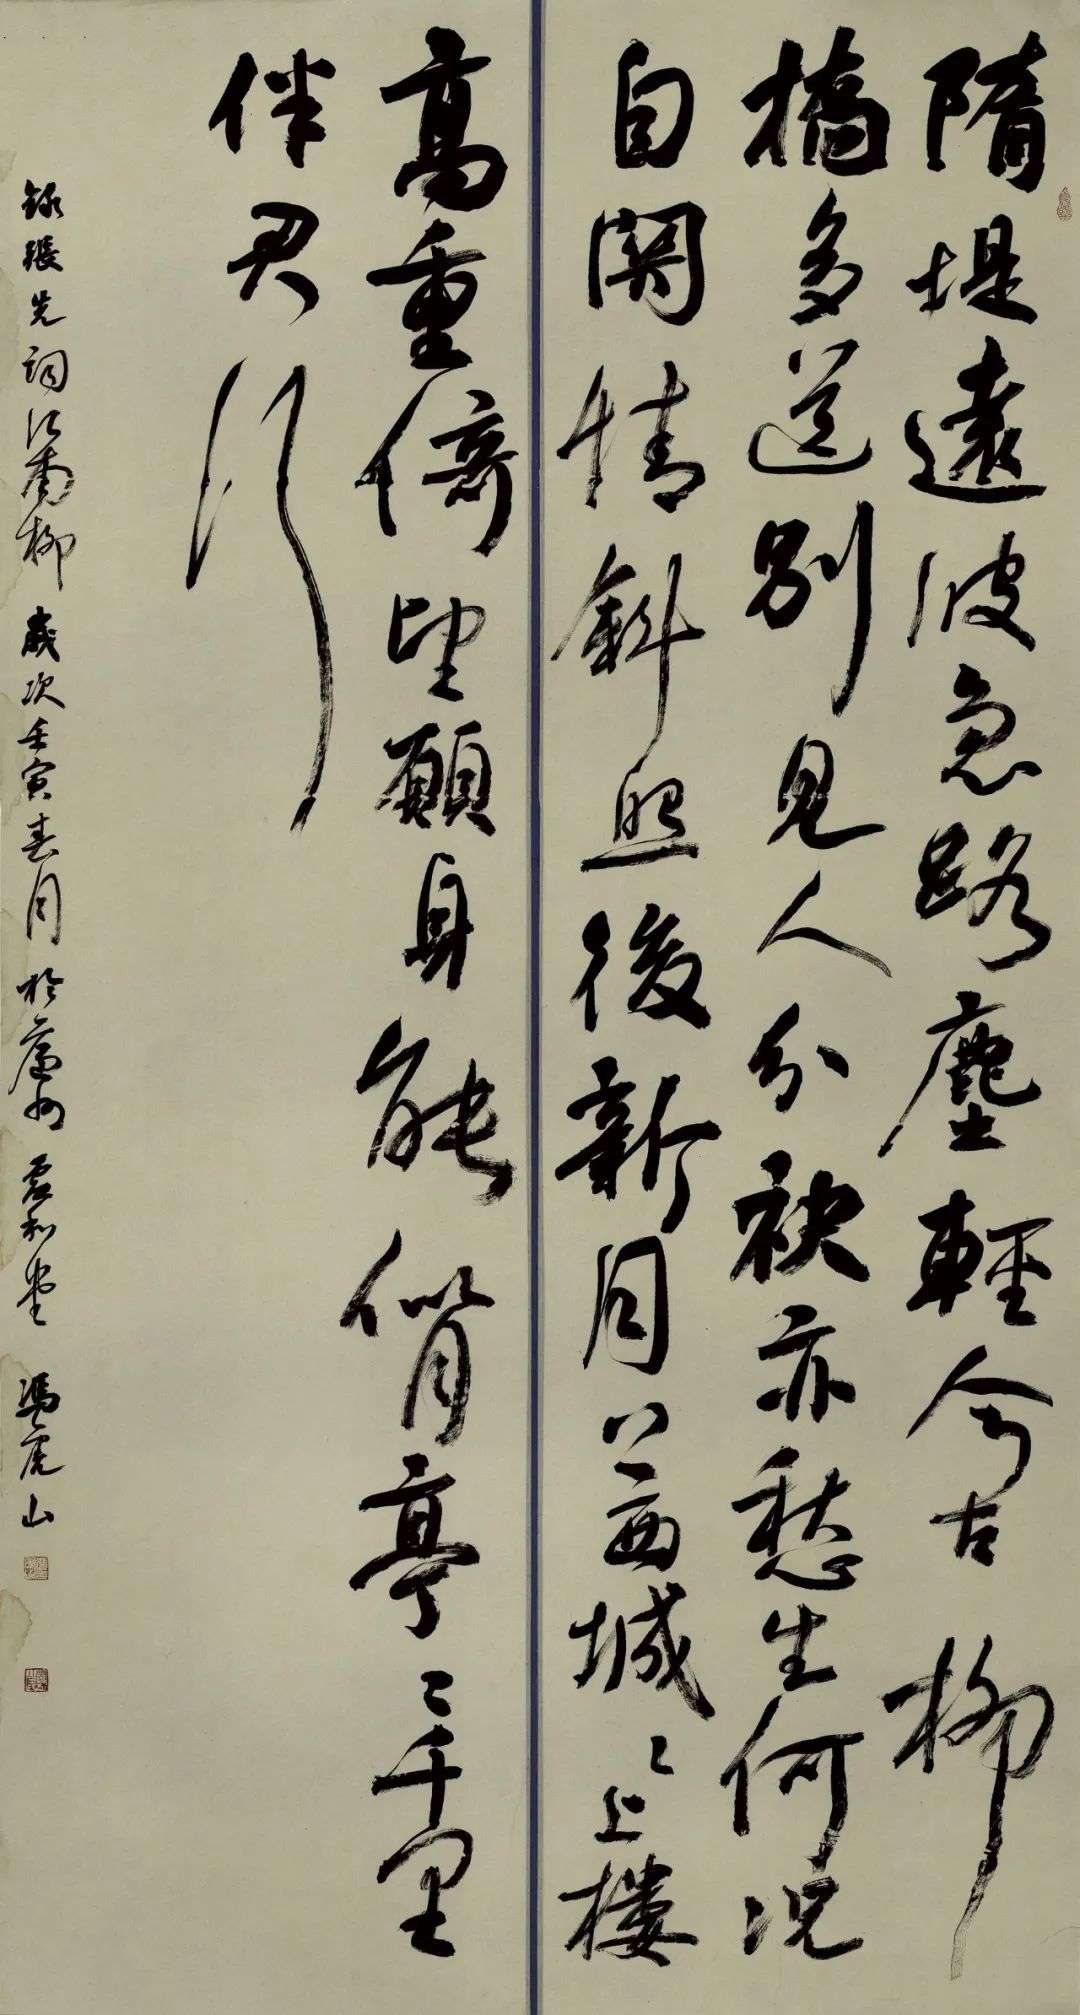 隋堤遠波急路塵輕今古柳
橋多送別見人分袂亦愁生何況
自關情斜照後新月上西城〻上樓
高重倚望願身能似月亭〻千里
伴君行
錄張先詞江南柳 歲次壬寅春月於廬州 和堂 馮虎山